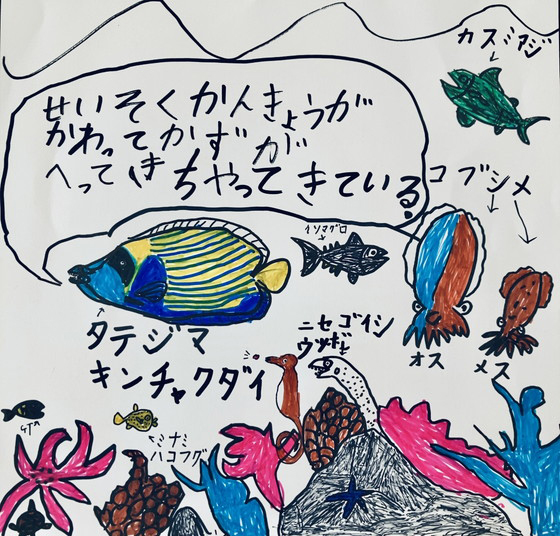 カスミアジ
せいそくかんきょうが
かわってかずが
へってきちゃってきている。
コブシメ
イソマグロ
タテジマ
キンチャクダイ
ニセゴイシ
ウツボ
オス
メス
GT
ミナミ
ハコフグ